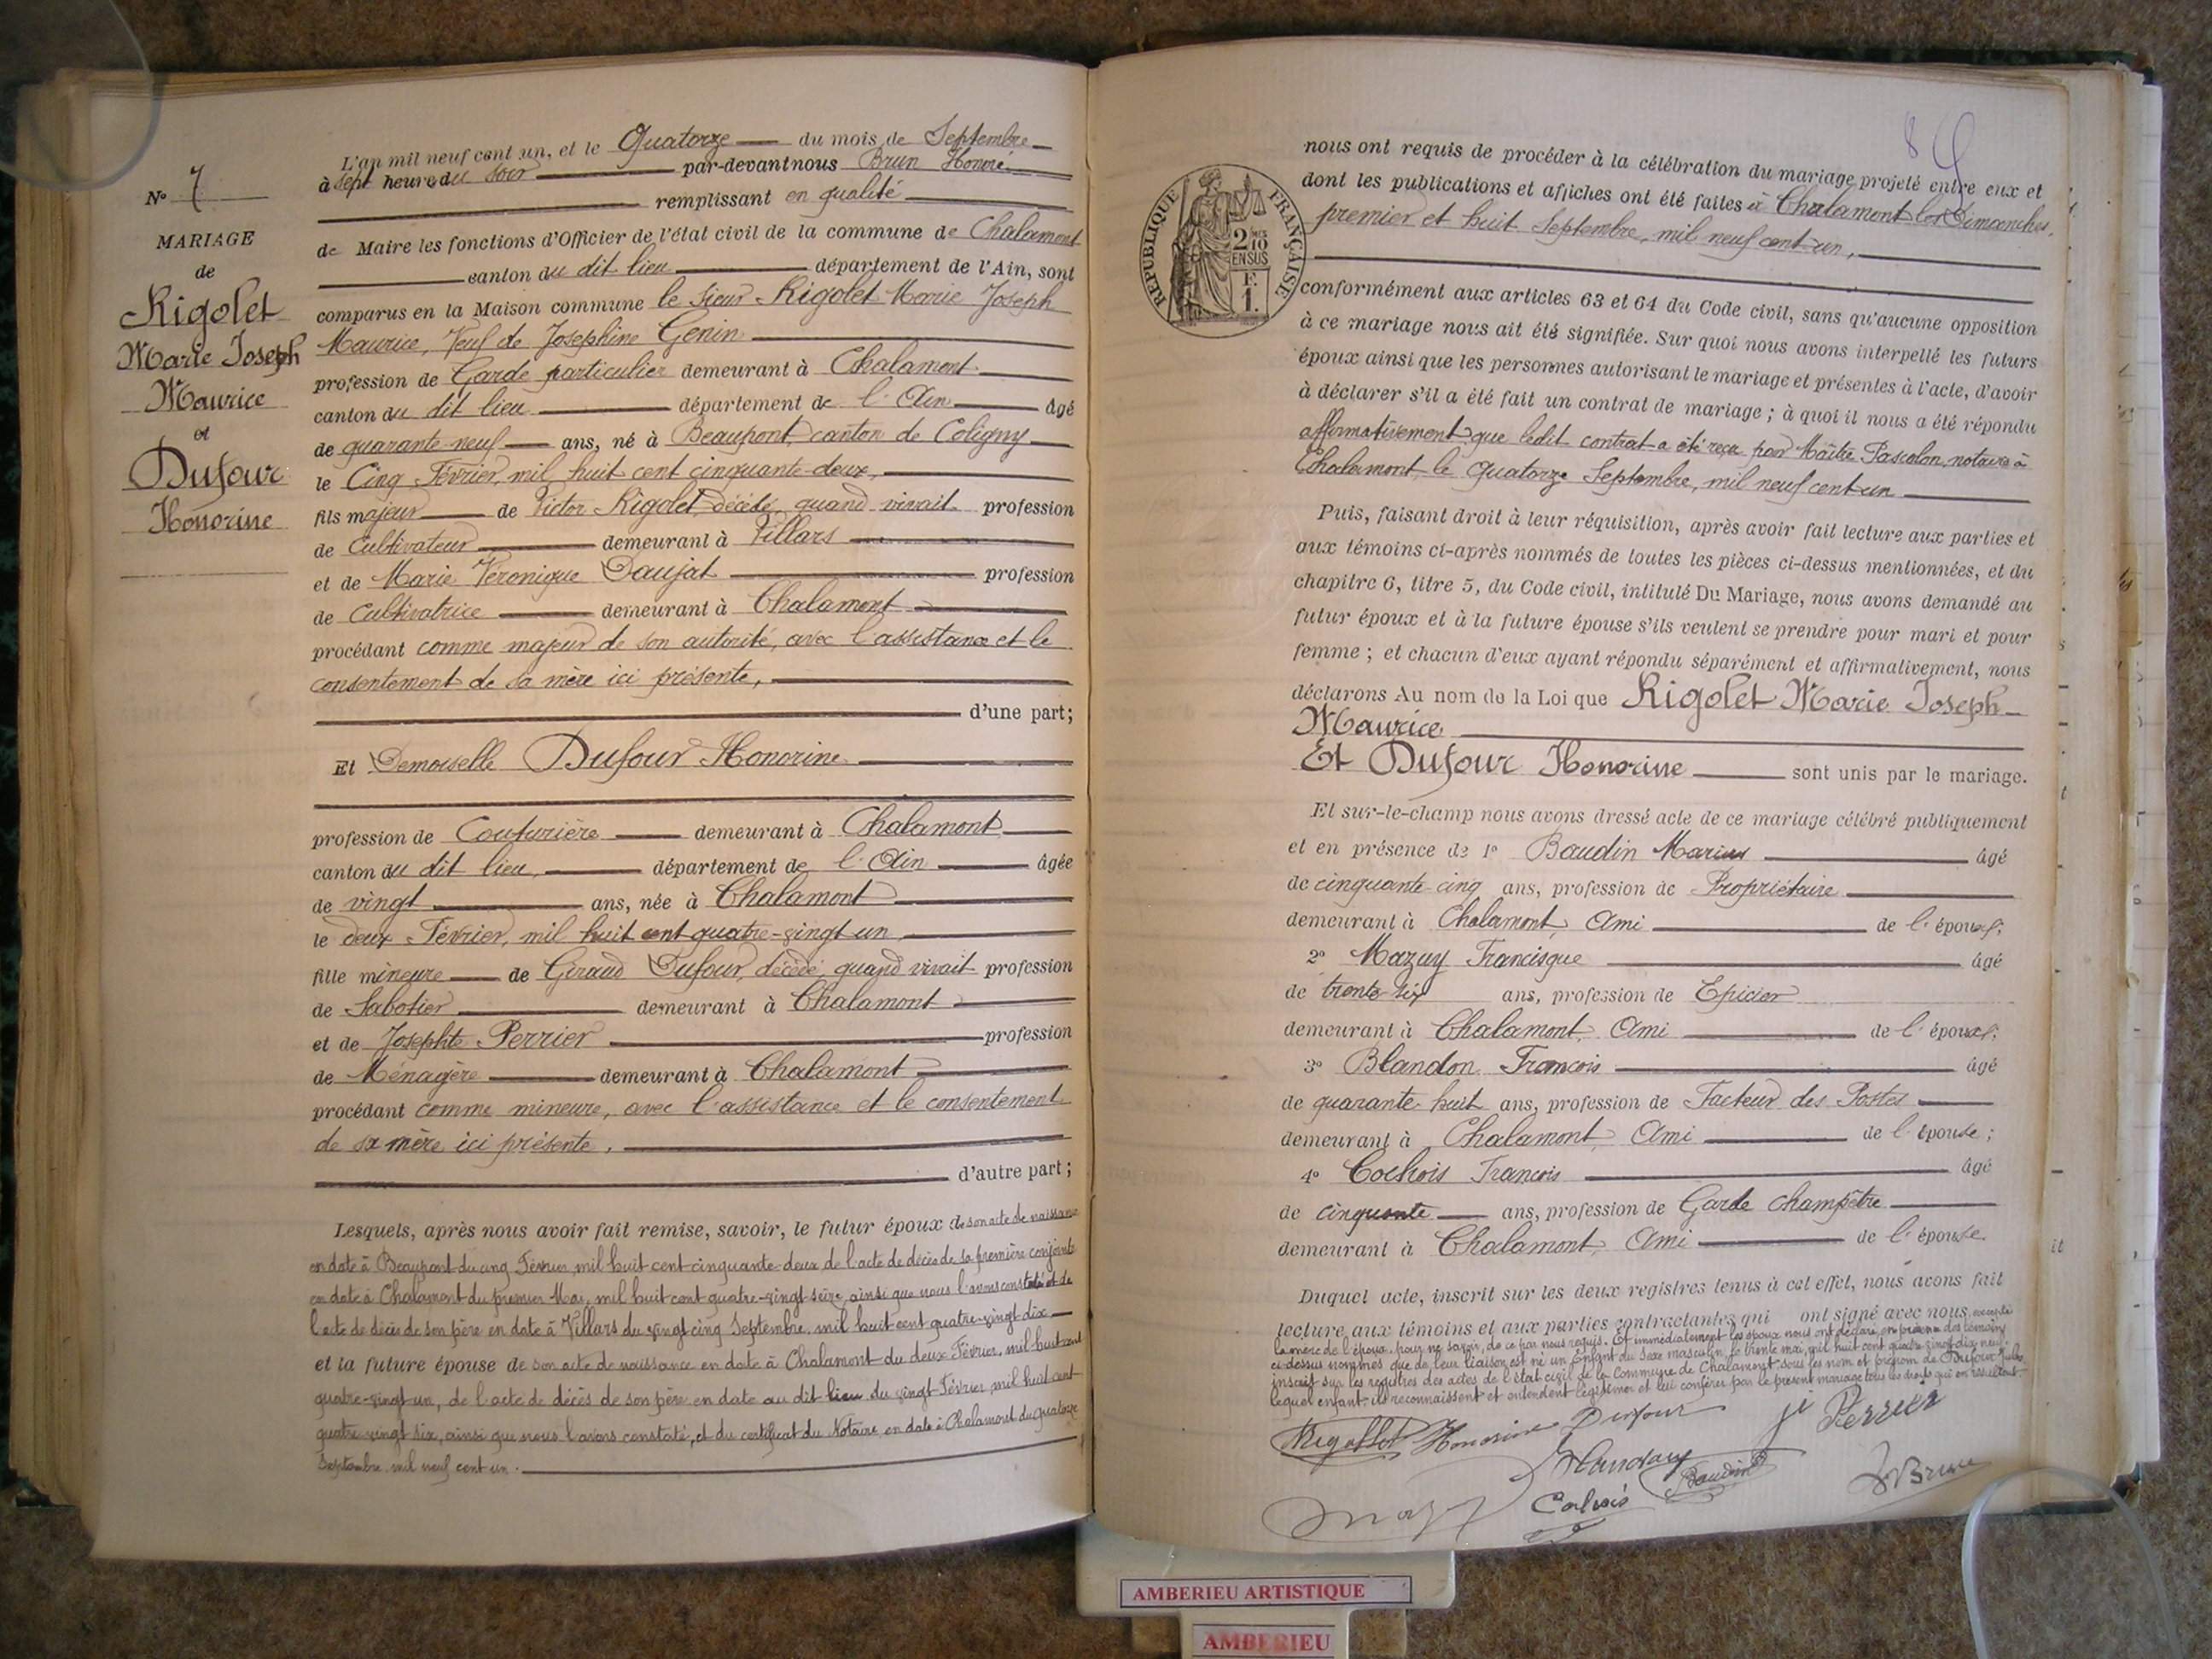 N° 7
MARIAGE
de
Rigolet
Marie Joseph
Maurice
et
Dufour
Honorine
L'an mil neuf cent un, et le Quatorze du mois de Septembre
à sept heure du soir par-devant nous Brun Honoré
remplissant en qualité
de Maire les fonctions d'Officier de l'état civil de la commune de Chalamont
canton du dit lieu département de l'Ain, sont
comparus en la Maison commune le sieur Rigolet Marie Joseph
Maurice, Veuf de Josephine Genin
profession de Garde particulier demeurant à Chalamont
canton du dit lieu département de l'Ain âgé
de quarante-neuf ans, né à Beaupont, canton de Coligny
le Cinq Février, mil huit cent cinquante-deux,
fils majeur de Victor Rigolet, décédé, quand vivait profession
de Cultivateur demeurant à Villars
et de Marie Véronique Daujat profession
de Cultivatrice demeurant à Chalamont
procédant comme majeur de son autorité, avec l'assistance et le
consentement de sa mère ici présente,
d'une part;
Et Demoiselle Dufour Honorine
profession de Couturière demeurant à Chalamont
canton du dit lieu, département de l'Ain âgée
de vingt ans, née à Chalamont
le deux Février, mil huit cent quatre-vingt un
fille mineure de Giraud Dufour, décédé, quand vivait profession
de Sabotier demeurant à Chalamont
et de Josephte Perrier profession
de Ménagère demeurant à Chalamont
procédant comme mineure, avec l'assistance et le consentement
de sa mère ici présente,
d'autre part;
Lesquels, après nous avoir fait remise, savoir, le futur époux de son acte de naissance
en date à Beaupont du cinq Février mil huit cent cinquante-deux de l'acte de décès de sa première conjointe
en date à Chalamont du premier Mai, mil huit cent quatre-vingt seize, ainsi que nous l'avons constaté et de
l'acte de décès de son père en date à Villars du vingt cinq Septembre, mil huit cent quatre-vingt dix
et la future épouse de son acte de naissance en date à Chalamont du deux Février, mil huit cent
quatre-vingt-un, de l'acte de décès de son père en date au dit lieu du vingt Février mil huit cent
quatre-vingt six, ainsi que nous l'avons constaté, et du certificat du Notaire en date à Chalamont du quatorze
Septembre mil neuf cent un.
RÉPUBLIQUE FRANÇAISE
2/10 EN SUS
F.
1.
nous ont requis de procéder à la célébration du mariage projeté entre eux et
dont les publications et affiches ont été faites à Chalamont les Dimanches,
premier et huit Septembre, mil neuf cent un,
conformément aux articles 63 et 64 du Code civil, sans qu'aucune opposition
à ce mariage nous ait été signifiée. Sur quoi nous avons interpellé les futurs
époux ainsi que les personnes autorisant le mariage et présentes à l'acte, d'avoir
à déclarer s'il a été fait un contrat de mariage ; à quoi il nous a été répondu
affirmativement que ledit contrat a été reçu par Maître Pascalon, notaire à
Chalamont, le Quatorze Septembre, mil neuf cent un
Puis, faisant droit à leur réquisition, après avoir fait lecture aux parties et
aux témoins ci-après nommés de toutes les pièces ci-dessus mentionnées, et du
chapitre 6, titre 5, du Code civil, intitulé Du Mariage, nous avons demandé au
futur époux et à la future épouse s'ils veulent se prendre pour mari et pour
femme ; et chacun d'eux ayant répondu séparément et affirmativement, nous
déclarons Au nom de la Loi que Rigolet Marie Joseph
Maurice
Et Dufour Honorine sont unis par le mariage.
Et sur-le-champ nous avons dressé acte de ce mariage célébré publiquement
et en présence de 1° Baudin Marius âgé
de cinquante-cinq ans, profession de Propriétaire
demeurant à Chalamont, Ami de l'époux;
2° Mazuy Francisque âgé
de trente-six ans, profession de Epicier
demeurant à Chalamont, Ami de l'époux;
3° Blandon François âgé
de quarante-huit ans, profession de Facteur des Postes
demeurant à Chalamont, Ami de l'épouse;
4° François âgé
de cinquante ans, profession de Garde champêtre
demeurant à Chalamont, Ami de l'épouse.
Duquel acte, inscrit sur les deux registres tenus à cet effet, nous avons fait
lecture aux témoins et aux parties contractantes qui ont signé avec nous, excepté
la mère de l'époux, pour ne savoir, de ce par nous requis. Et immédiatement les époux nous ont déclaré, en présence des témoins
ci-dessus nommés que de leur liaison est né un Enfant du sexe masculin, le trente mai, mil huit cent quatre-vingt-dix-neuf
inscrit sur les registres des actes de l'état civil de la Commune de Chalamont sous les nom et prénom de Dufour
lequel enfant ils reconnaissent et entendent légitimer et lui conférer par le présent mariage tous les droits qui en résultent.
Rigollet Honorine Dufour Perrier
Baudin
Brun
AMBERIEU ARTISTIQUE
AMBERIEU